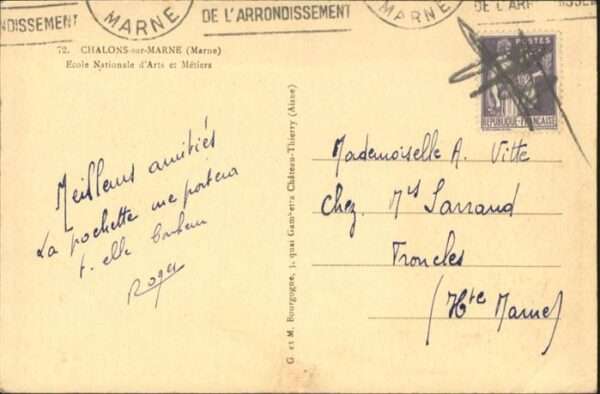 NDISSEMENT
MARNE
DE L'ARRONDISSEMENT
MARNE
72. CHALONS-sur-MARNE (Marne)
Ecole Nationale d'Arts et Métiers
POSTES
REPUBLIQUE-FRANÇAISE
Meilleurs amitiés
La pochette me portera
t. elle bonheur
Roger
G. et M. Bourgogne, 3, quai Gambetta Château-Thierry (Aisne)
Mademoiselle A. Vitte
Chez. Mrs Sarraud
Froncles
(Hte Marne)